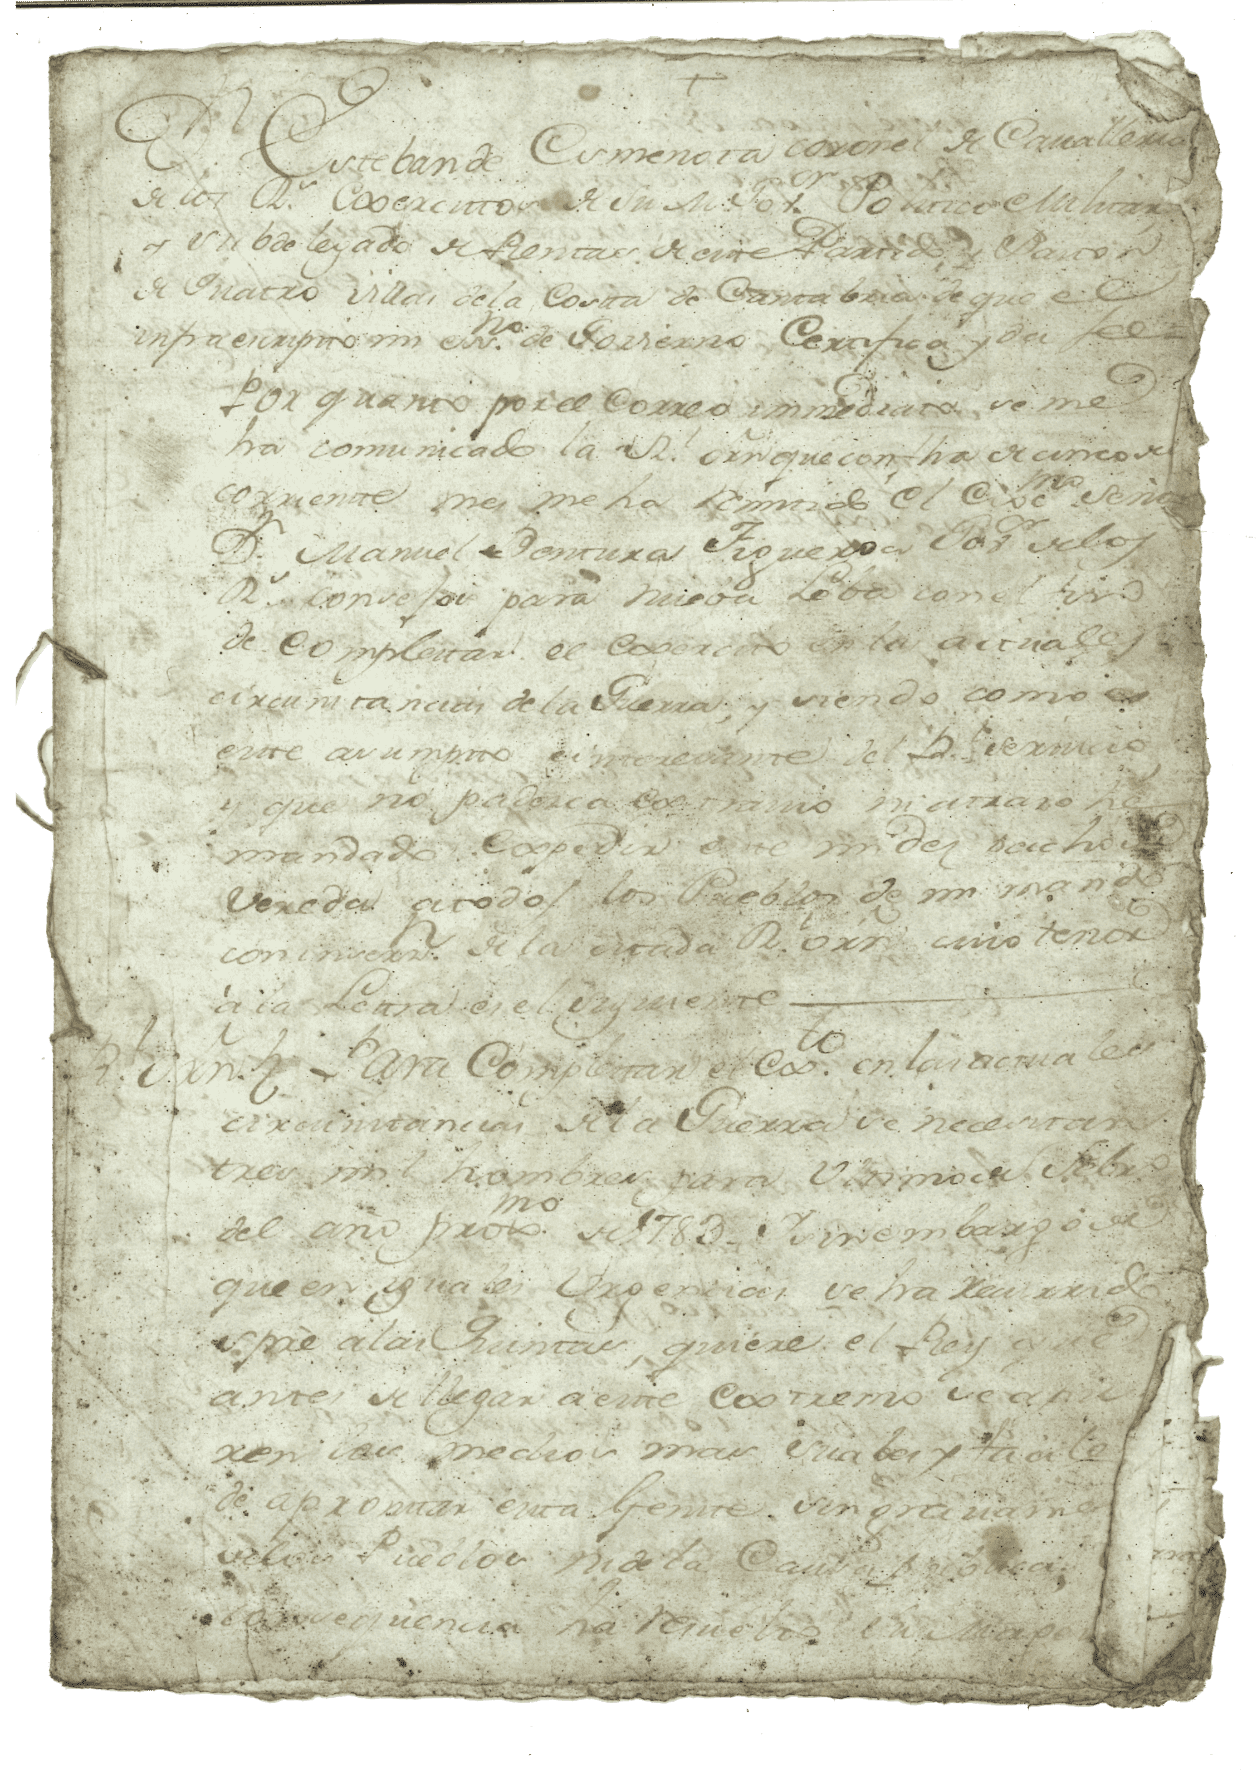 Dn Esteban de Esmenota coronel de Cavalleria
de los Rs. Exercitos de su M. Gor. Politico Militar
y subdelegado de Rentas de este Partido, y Baston
de Quatro Villas de la Costa de Cantabria de que el
infraescripto mi esno. de Govierno Certifica y da fee =
Por quanto por el Correo immediato se me
ha comunicado la Rl. orn que con fha de cinco de
corriente mes me ha remitido el Exmo. Señor
Dn. Manuel Ventura Figueroa Gor. de los
Rs. Consejos para nueba Leba con el fin
de completar el Exercito en las actuales
circunstancias de la Guerra, y siendo como es
este asumpto interesante del Rl. servicio
y que no padezca extravio ni atraso he
mandado Expedir este mi despacho
Vereda a todos los Pueblos de mi mando
con insern. de la citada Rl. orn cuio tenor
a la Letra es el siguiente
Rl. Orn. Para Completar el Exto. en las actuales
circunstancias de la Guerra se necesitan
tres mil hombres para Ultimo de Febro
del año proxmo. de 1783. Y sin embargo de
que en iguales Urgencias se ha recurrido
spre a las Quintas, quiere el Rey que
antes de llegar a este Extremo se apu
ren los medios mas suabes y faciles
de aprontar esta Gente sin gravamen
de los Pueblos ni de la Causa publica,
consequencia ha resuelto su